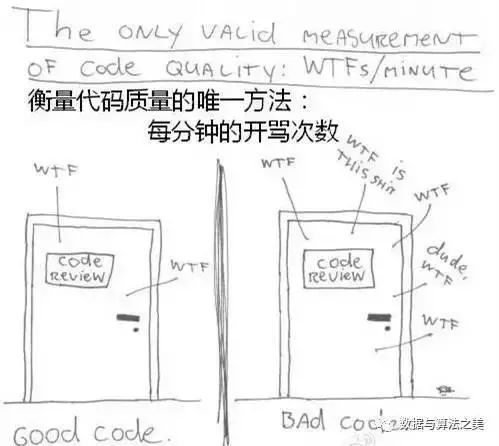 The ONLY VALID MEASUREMENT
OF Code QUALITY: WTFs/MINUTE
衡量代码质量的唯一方法：
每分钟的开骂次数
WTF
CODE
REVIEW
WTF
GOOD CODE.
WTF
WTF IS
THIS SHIT
WTF
CODE
REVIEW
dude,
WTF
WTF
BAD CODE
数据与算法之美